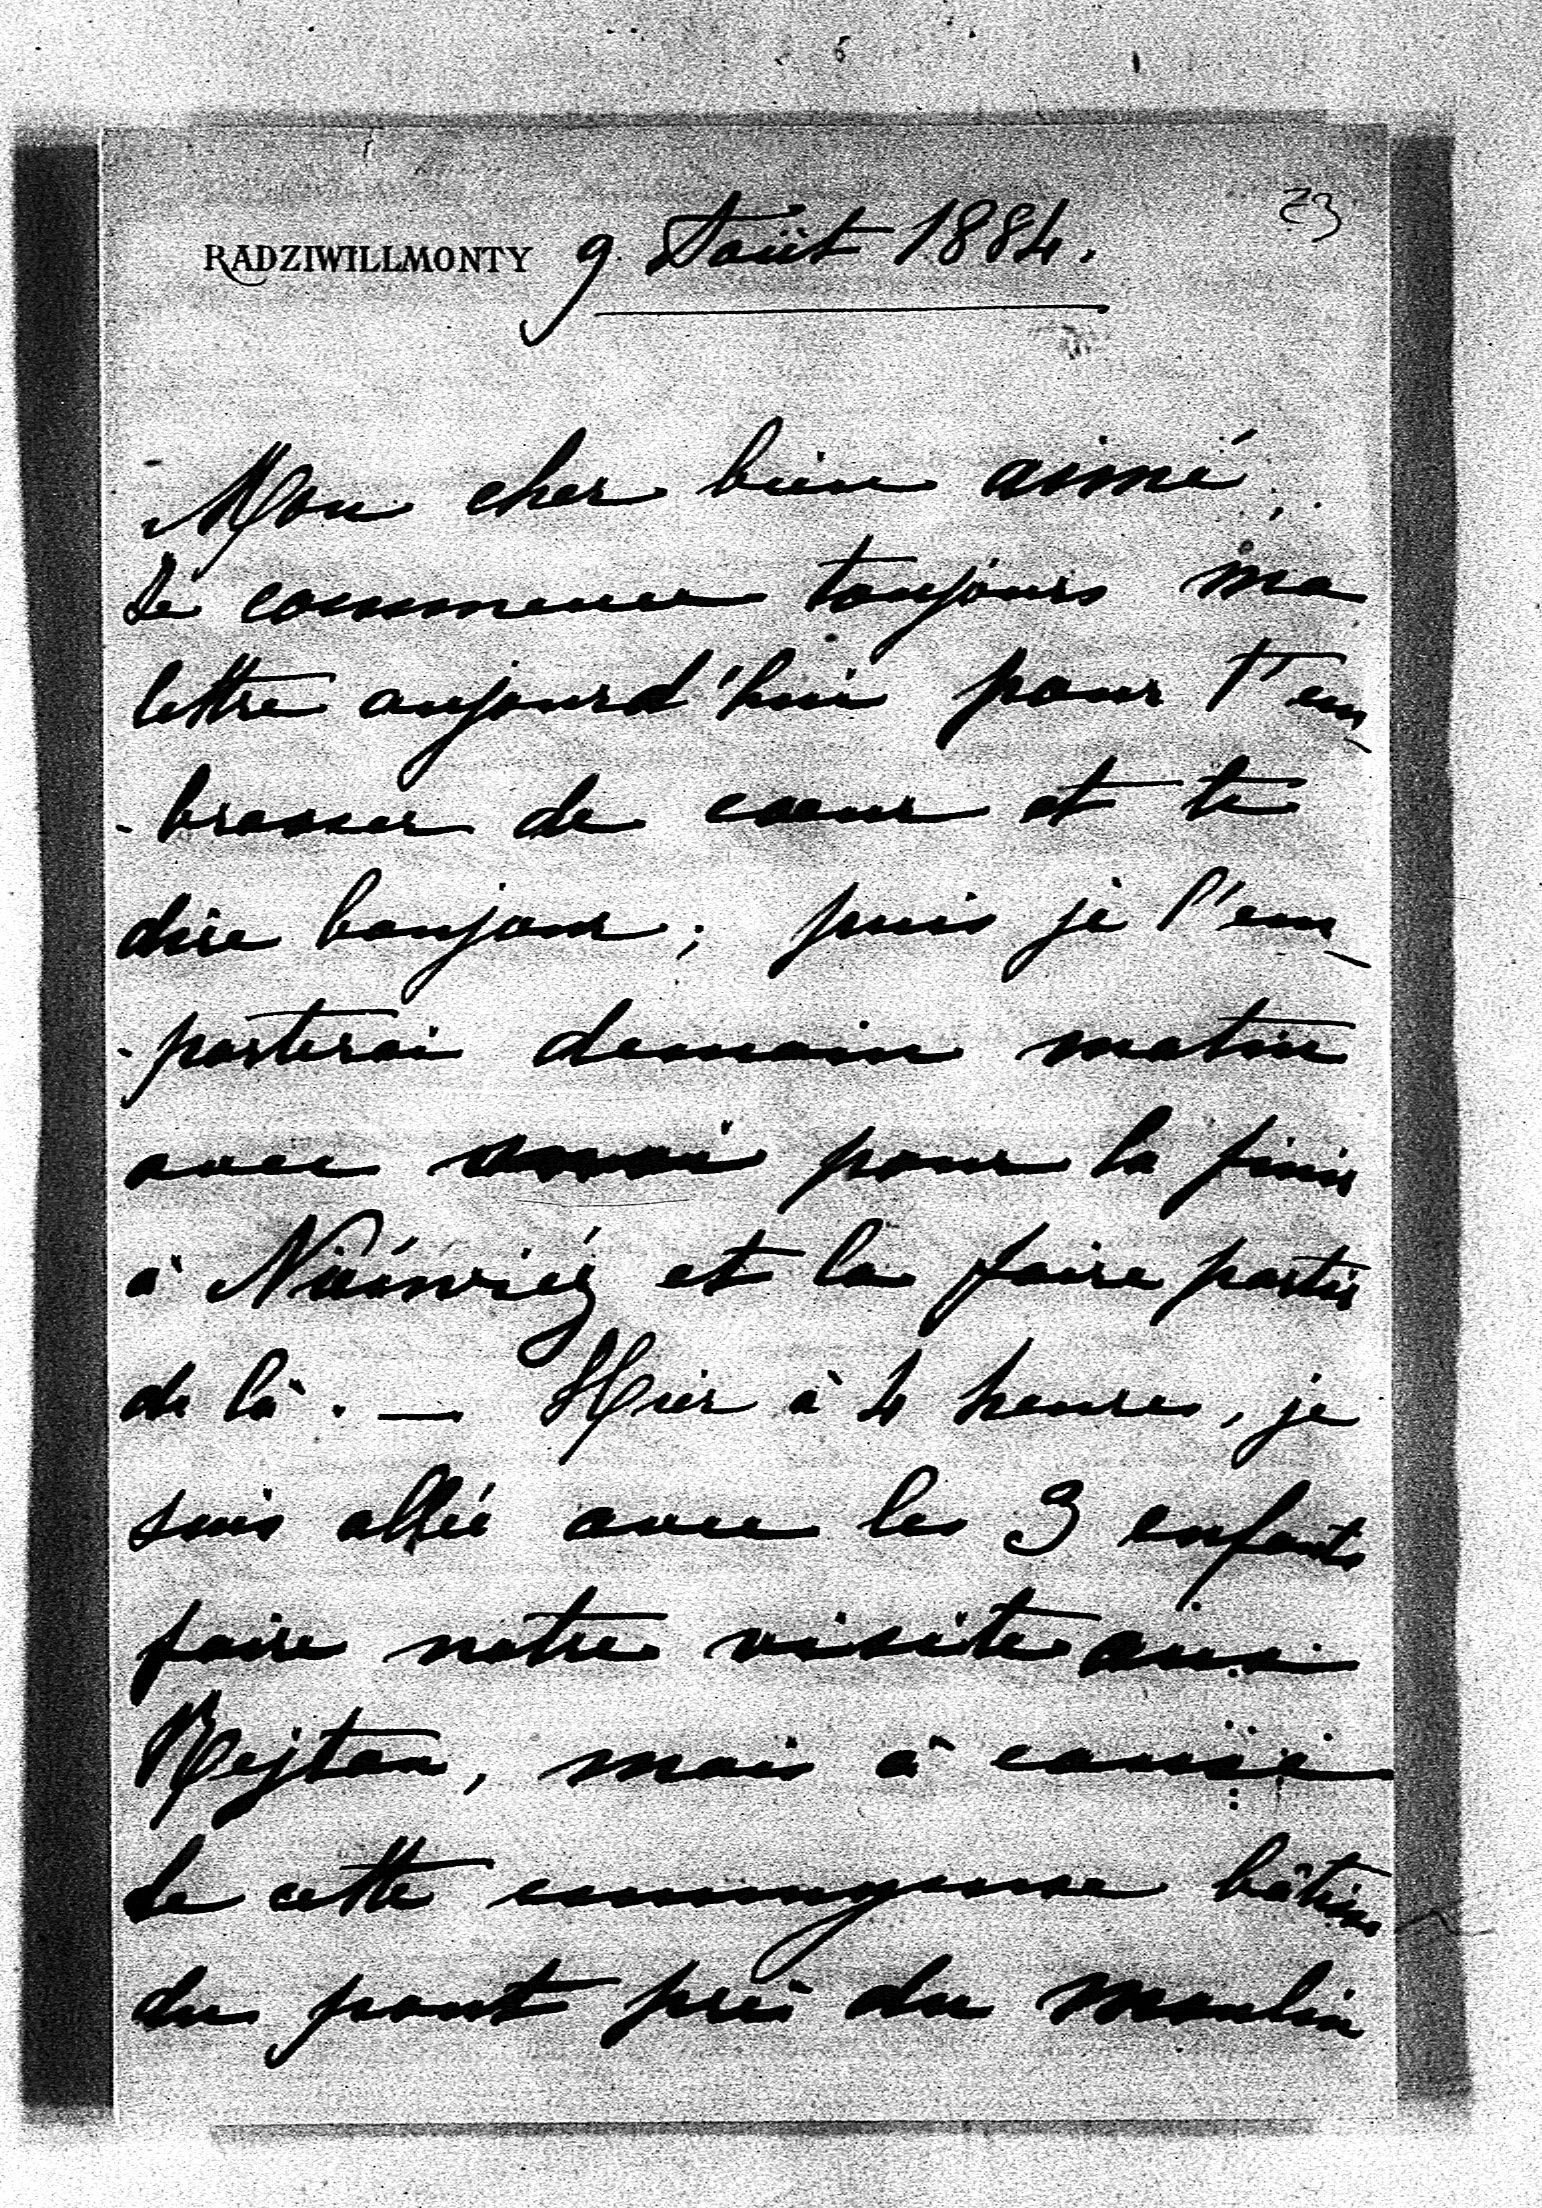 23
RADZIWILLMONTY 9. Août 1884.
Mon cher bien aimé,
Je commence toujours ma
lettre aujourd'hui pour t'em-
-brasser de cœur et te
dire bonjour; puis je l'em-
-porterai demain matin
avec moi pour la finir
à Nieświéz et la faire partir
de là. — Hier à 4 heures, je
suis allée avec les 3 enfants
faire notre visite aux
Rejtan, mais à cause
de cette ennuyeuse bâtisse
du pont près du moulin